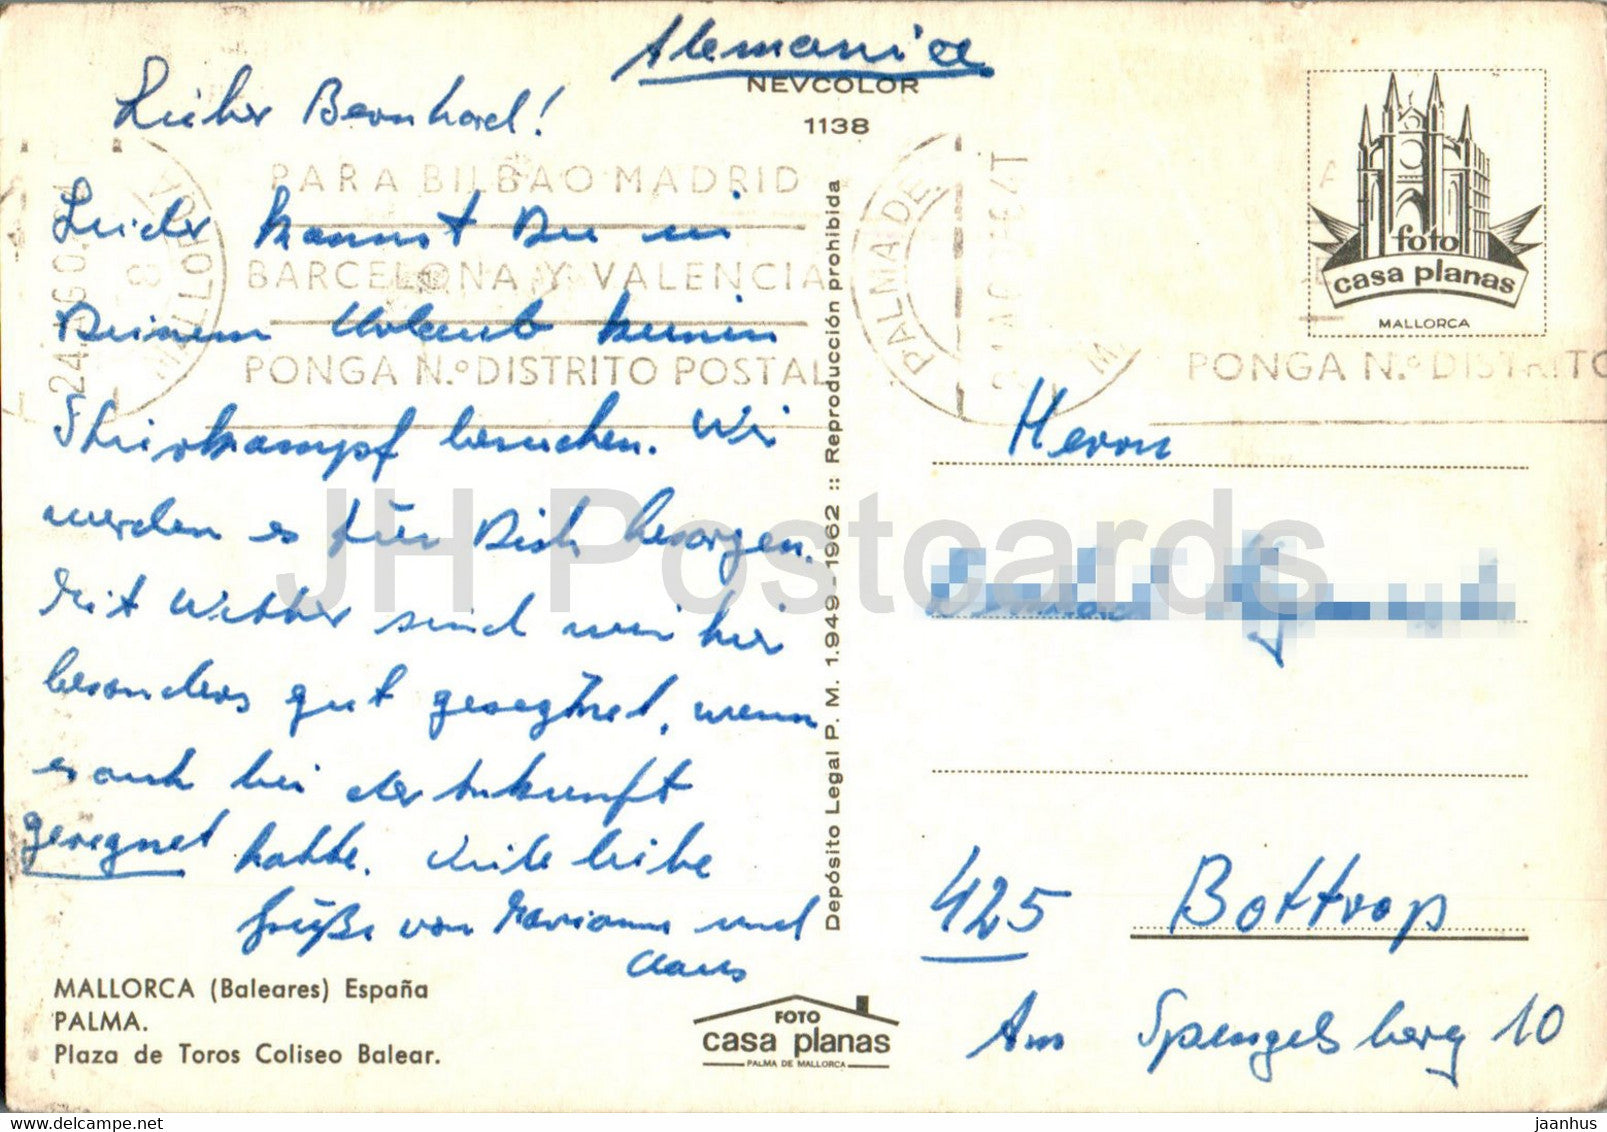 Alemania
NEVCOLOR
1138
Lieber Bernhard!
Leider kannst Du in
Deinem Urlaub keinen
Stierkampf besuchen. Wir
werden es für Dich besorgen.
Mit Wetter sind wir hier
besonders gut gesegnet, wenn
es auch bei der Ankunft
geregnet hatte. Viele liebe
Grüße von Marianne und
Claus
PARA BILBAO MADRID
BARCELONA Y VALENCIA
PONGA N.º DISTRITO POSTAL
PALMA DE
MALLORCA
PONGA N.º DISTRITO
Depósito Legal P. M. 1.949 - 1962 :: Reproducción prohibida
foto
casa planas
MALLORCA
Herrn
425 Bottrop
Am Spengelsberg 10
MALLORCA (Baleares) España
PALMA.
Plaza de Toros Coliseo Balear.
FOTO
casa planas
PALMA DE MALLORCA
JH Postcards
jaanhus
delcampe.net